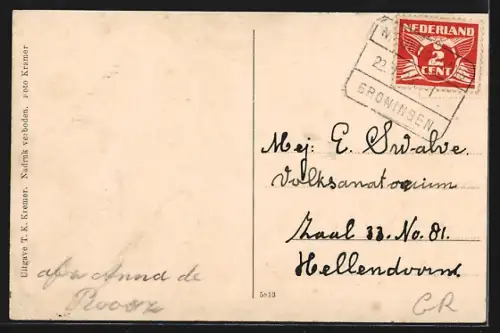 Uitgave T. K. Kremer. Nadruk verboden. Foto Kramer
NEDERLAND
2
CENT
22
GRONINGEN
Mej: E. Swalve.
Volksanatorium
Zaal 33. No. 81.
Hellendoorn
afz Anna de
GR